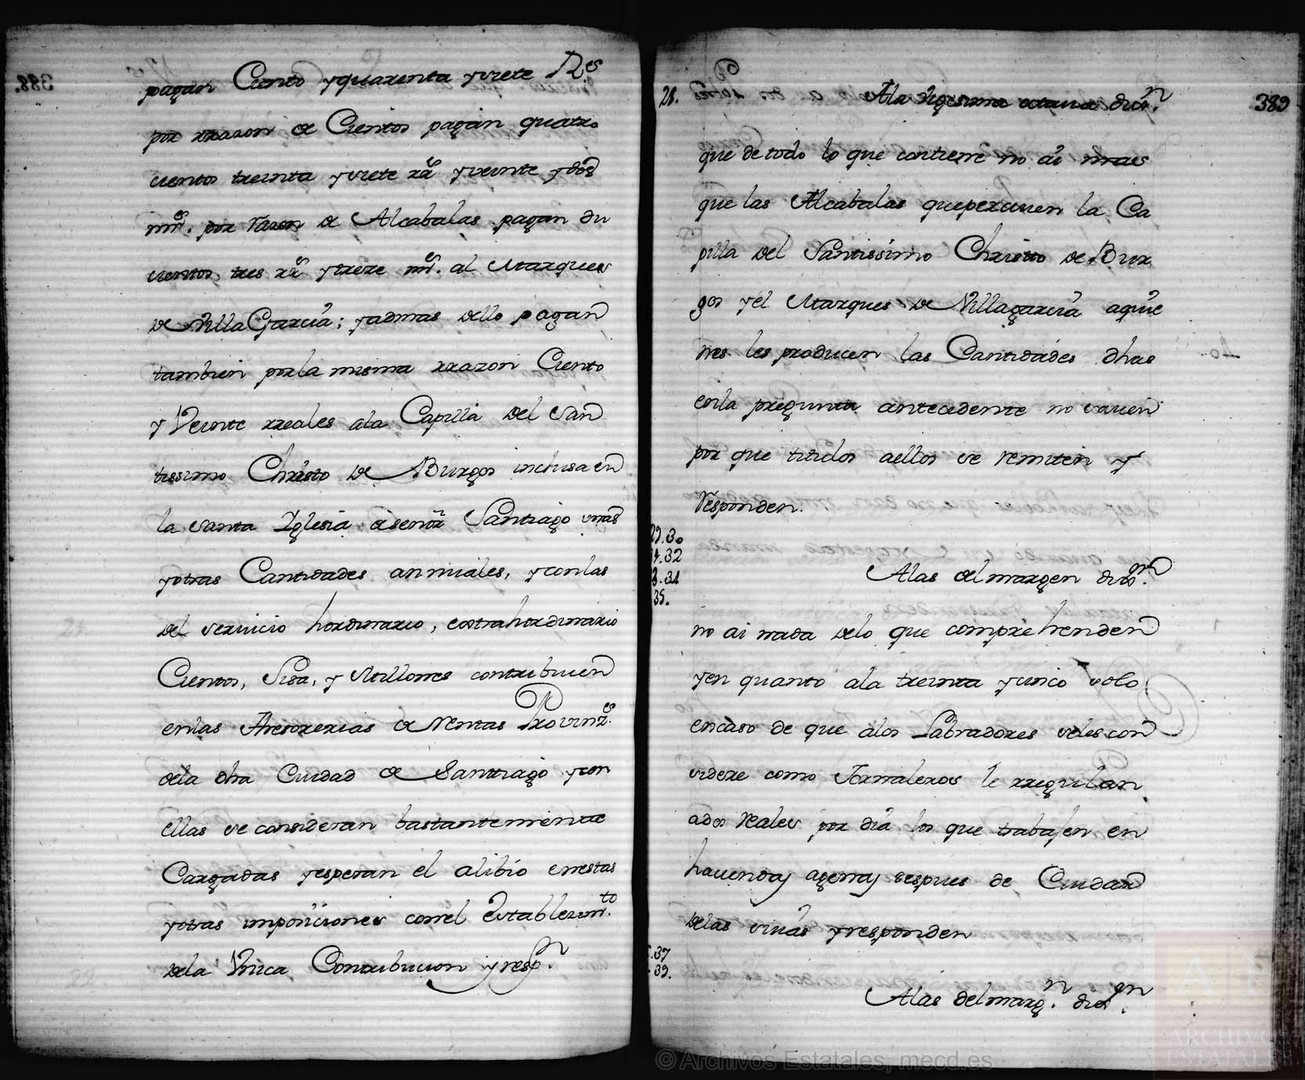 388.
pagan Ciento yquarenta ysiete R.s
por rrazon de Cientos pagan quatro
cientos treinta ysiete rr.s yveinte ydos
mrs. por razon de Alcabalas pagan du
cientos tres rr.s ytreze mrs. al Marques
de Villa Garcia; yadmas dello pagan
tambien porla misma rrazon Ciento
y Veinte rreales ala Capilla del San
tissimo Christo de Burgos inclusa en
la santa Iglesia de señor Santiago unas
yotras Cantidades annuales, yconlas
del servicio hordinario, eestrahordinario
Cientos, Sisa, y Millones contribuien
enlas Thesorerias de rentas Provinz.s
dela dha Ciudad de Santiago ycon
ellas se consideran bastantemente
Cargadas yesperan el alibio enestas
yotras imposiciones conel Establezim.to
dela Unica Contribucion yresp.n
389
28. Ala vigesima octava dixer.n
que detodo lo que contiene no ai mas
que las Alcabalas queperciven la Ca
pilla del Santissimo Christo de Bur
gos yel Marques de Villagarcia aquie
nes les producen las Cantidades dhas
enla pregunta antecedente no saven
por que titulos aellos se remiten y
responden.
29.30
31.32
33.34
35.
Alas del margen dix.n
no ai nada delo que comprehenden
yen quanto ala treinta ycinco solo
encaso de que alos Labradores selescon
sidere como Jornaleros le rregulan
ados reales por dia los que trabajen en
haciendas agenas despues de Cuidar
delas suias yresponden
37
39.
Alas delmarg.n dix.on
© Archivos Estatales, mecd.es
ARCHIVOS
ESTATALES